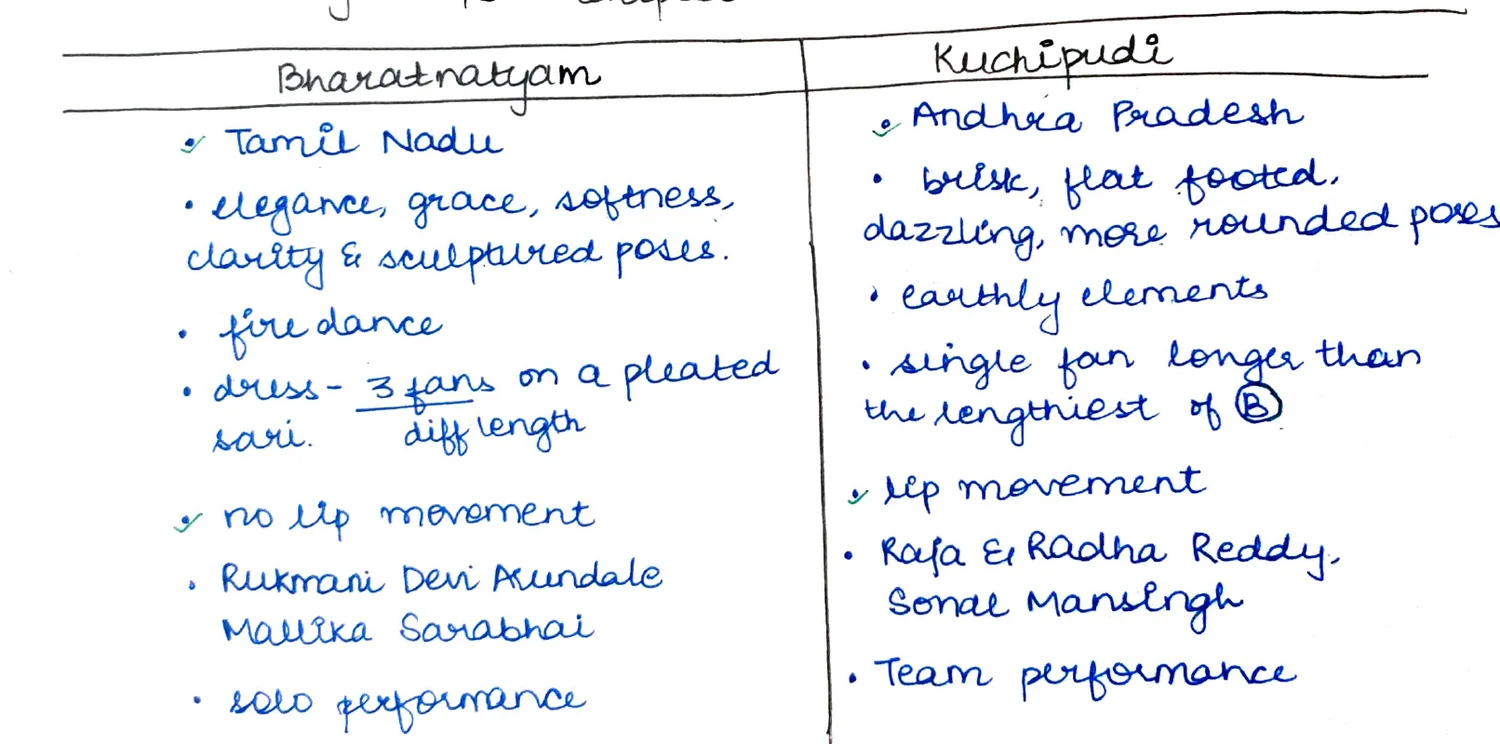 Bharatnatyam
• Tamil Nadu
• elegance, grace, softness,
clarity & sculptured poses.
• fire dance
• dress - 3 fans on a pleated
sari. diff length
• no lip movement
• Rukmani Devi Arundale
Mallika Sarabhai
• solo performance
Kuchipudi
• Andhra Pradesh
• brisk, flat footed,
dazzling, more rounded poses
• earthly elements
• single fan longer than
the lengthiest of B
• lip movement
• Raja & Radha Reddy,
Sonal Mansingh
• Team performance